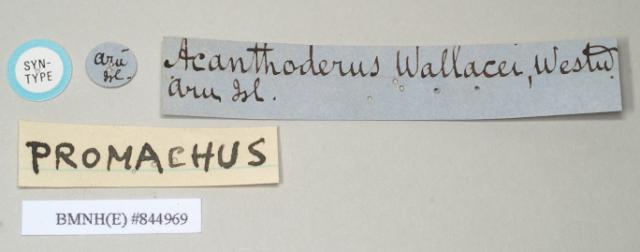 SYN-
TYPE
Aru
Isl.
Acanthoderus Wallacei, Westw
Aru Isl.
PROMACHUS
BMNH(E) #844969